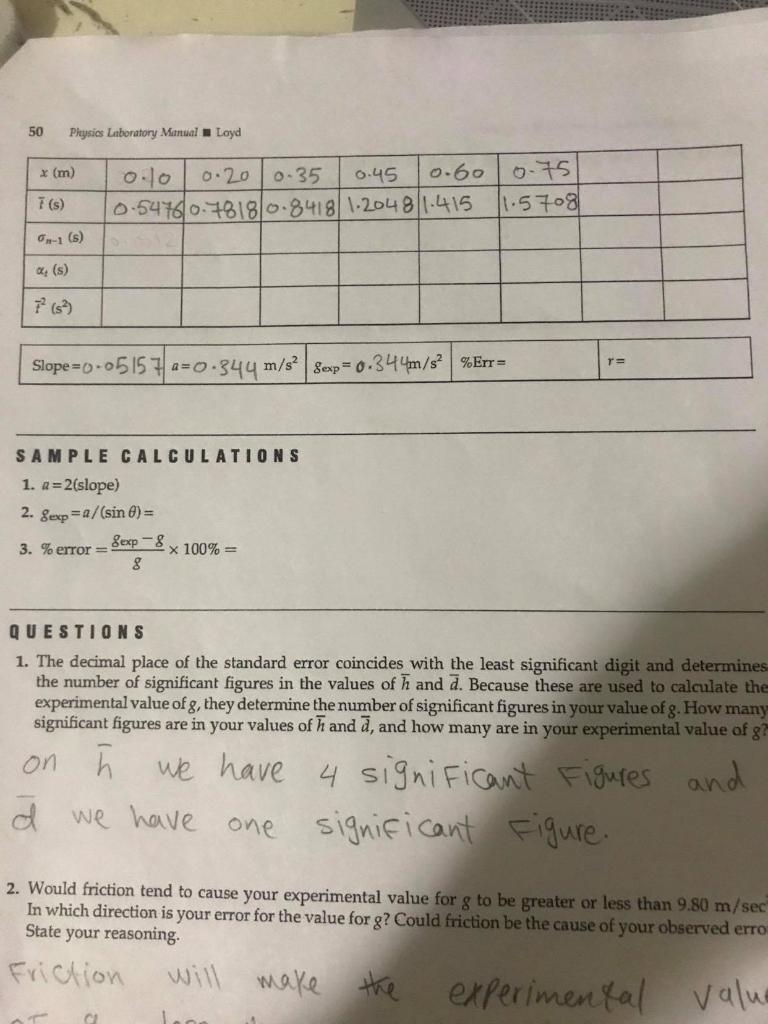 50 Physics Laboratory Manual ■ Loyd
x (m) 0.10 0.20 0.35 0.45 0.60 0.75
t̄ (s) 0.5476 0.7818 0.8418 1.2048 1.415 1.5708
σn−1 (s)
αt (s)
t̄² (s²)
Slope = 0.05157 a = 0.344 m/s² gexp = 0.344 m/s² %Err = r =
SAMPLE CALCULATIONS
1. a = 2(slope)
2. gexp = a/(sin θ) =
3. % error = (gexp − g)/g × 100% =
QUESTIONS
1. The decimal place of the standard error coincides with the least significant digit and determines
the number of significant figures in the values of h̄ and d̄. Because these are used to calculate the
experimental value of g, they determine the number of significant figures in your value of g. How many
significant figures are in your values of h̄ and d̄, and how many are in your experimental value of g?
on h̄ we have 4 significant Figures and
d̄ we have one significant Figure.
2. Would friction tend to cause your experimental value for g to be greater or less than 9.80 m/sec
In which direction is your error for the value for g? Could friction be the cause of your observed erro
State your reasoning.
Friction will make the experimental value